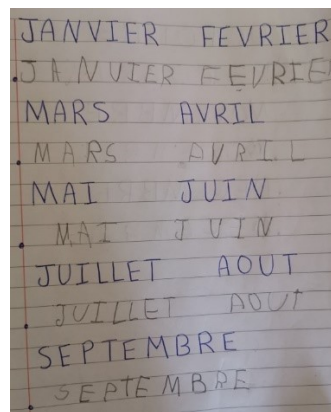 JANVIER FEVRIER
JANVIER FEVRIE
MARS AVRIL
MARS AVRIL
MAI JUIN
MAI JUIN
JUILLET AOUT
JUILLET AOUT
SEPTEMBRE
SEPTEMBRE